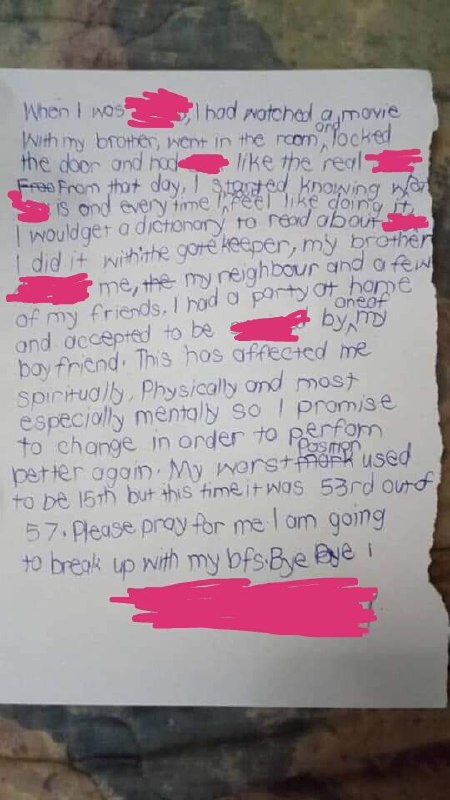 When I was , I had watched a movie
with my brother, went in the room, and locked
the door and had like the real
From that day, I started knowing
is and every time I feel like doing it,
I would get a dictionary to read about
I did it with the gate keeper, my brother
me, the my neighbour and a few
of my friends. I had a party at home
and accepted to be by one of my
boyfriend. This has affected me
spiritually, Physically and most
especially mentally so I promise
to change in order to perfom
better again. My worst position used
to be 15th but this time it was 53rd out of
57. Please pray for me I am going
to break up with my bfs. Bye Bye